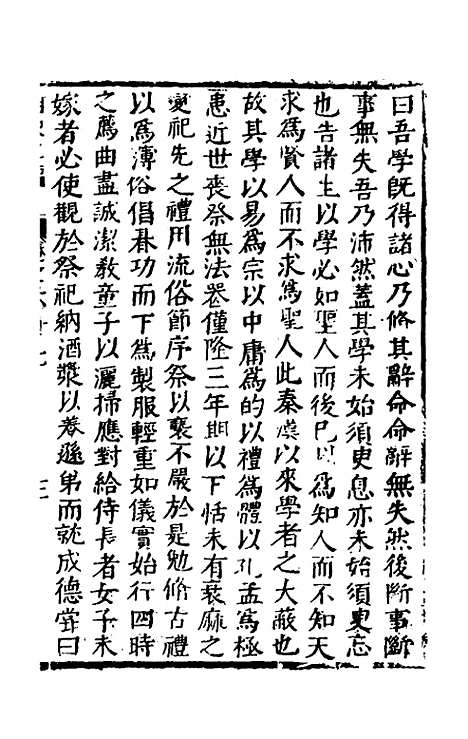 曰吾學既得諸心乃修其辭命命辭無失然後斷事斷
事無失吾乃沛然蓋其學未始須吏息亦未始須吏忘
也告諸生以學必如聖人而後已以為知人而不知天
求為賢人而不求為聖人此秦漢以來學者之大蔽也
故其學以易為宗以中庸為的以禮為體以孔孟為極
患近世喪祭無法喪僅隆三年期以下恬未有衰麻之
變祀先之禮用流俗節序祭以褻不嚴於是勉修古禮
以為薄俗倡朞功而下為製服輕重如儀實始行四時
之薦曲盡誠潔教童子以灑掃應對給侍長者女子未
嫁者必使觀於祭祀納酒漿以養遜弟而就成德嘗曰